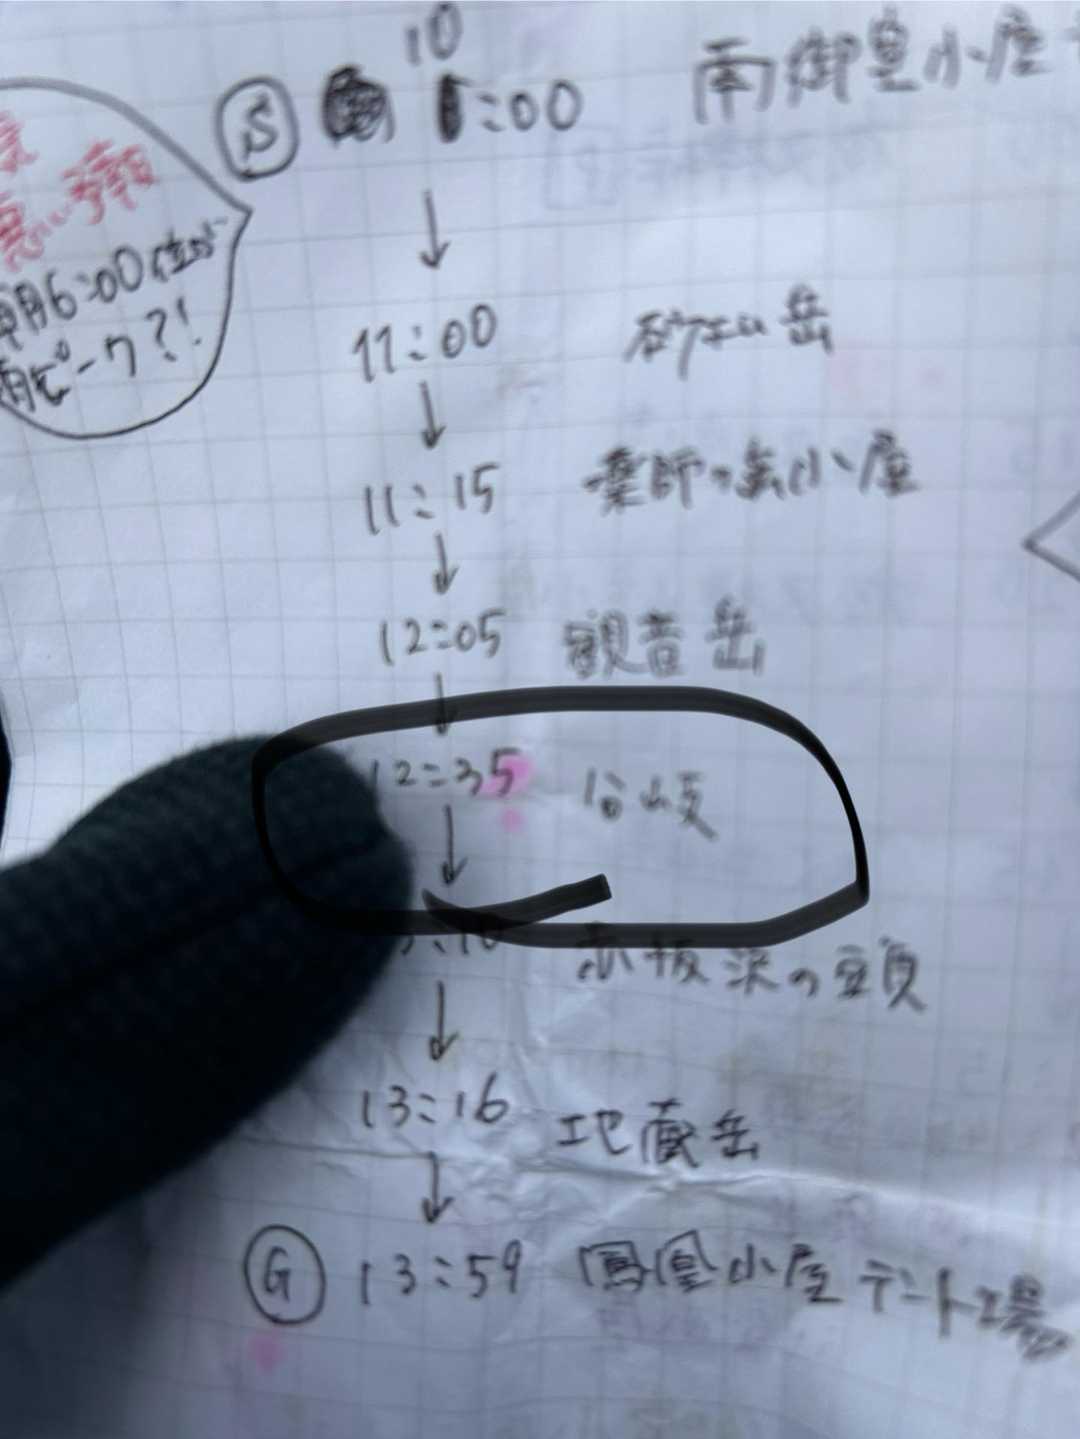 10
S :00 南御室小屋
悪い予報
朝6:00位が
雨ピーク?!
↓
11:00 砂払い岳
↓
11:15 薬師の岳小屋
↓
12:05 観音岳
↓
12:35 分岐
↓
:10 赤抜沢の頭
↓
13:16 地蔵岳
↓
G 13:59 鳳凰小屋テント場